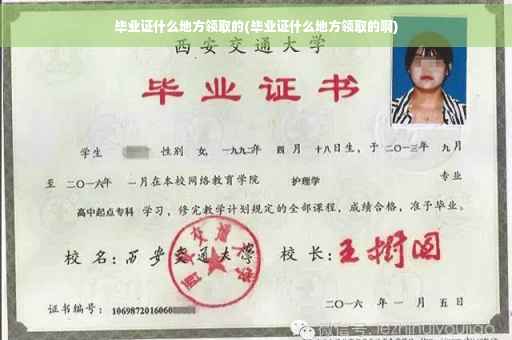 毕业证什么地方领取的(毕业证什么地方领取的啊)
西安交通大学
毕业证书
学生 性别 女, 一九九二年 四 月 十八日生, 于 二〇一三年 九月
至 二〇一六年 一月在本校网络教育学院 护理学 专业
高中起点专科 学习, 修完教学计划规定的全部课程, 成绩合格, 准予毕业。
校 名: 西安交通大学 校 长: 王树国
西安交通大学
证书编号: 1069872016060
二〇一六 年 一 月 五 日
微信号: jezhinuiyoujiao